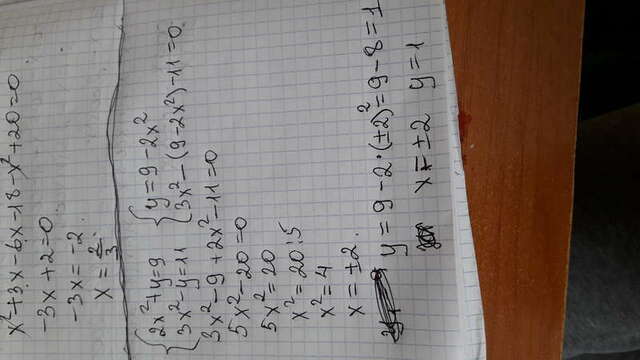 x²+3x-6x-18-x²+20=0
-3x+2=0
-3x=-2
x=2/3
{2x²+y=9 {y=9-2x²
{3x²-y=11 {3x²-(9-2x²)-11=0
3x²-9+2x²-11=0
5x²-20=0
5x²=20
x²=20:5
x²=4
x=±2.
y=9-2·(±2)²=9-8=1
x=±2 y=1